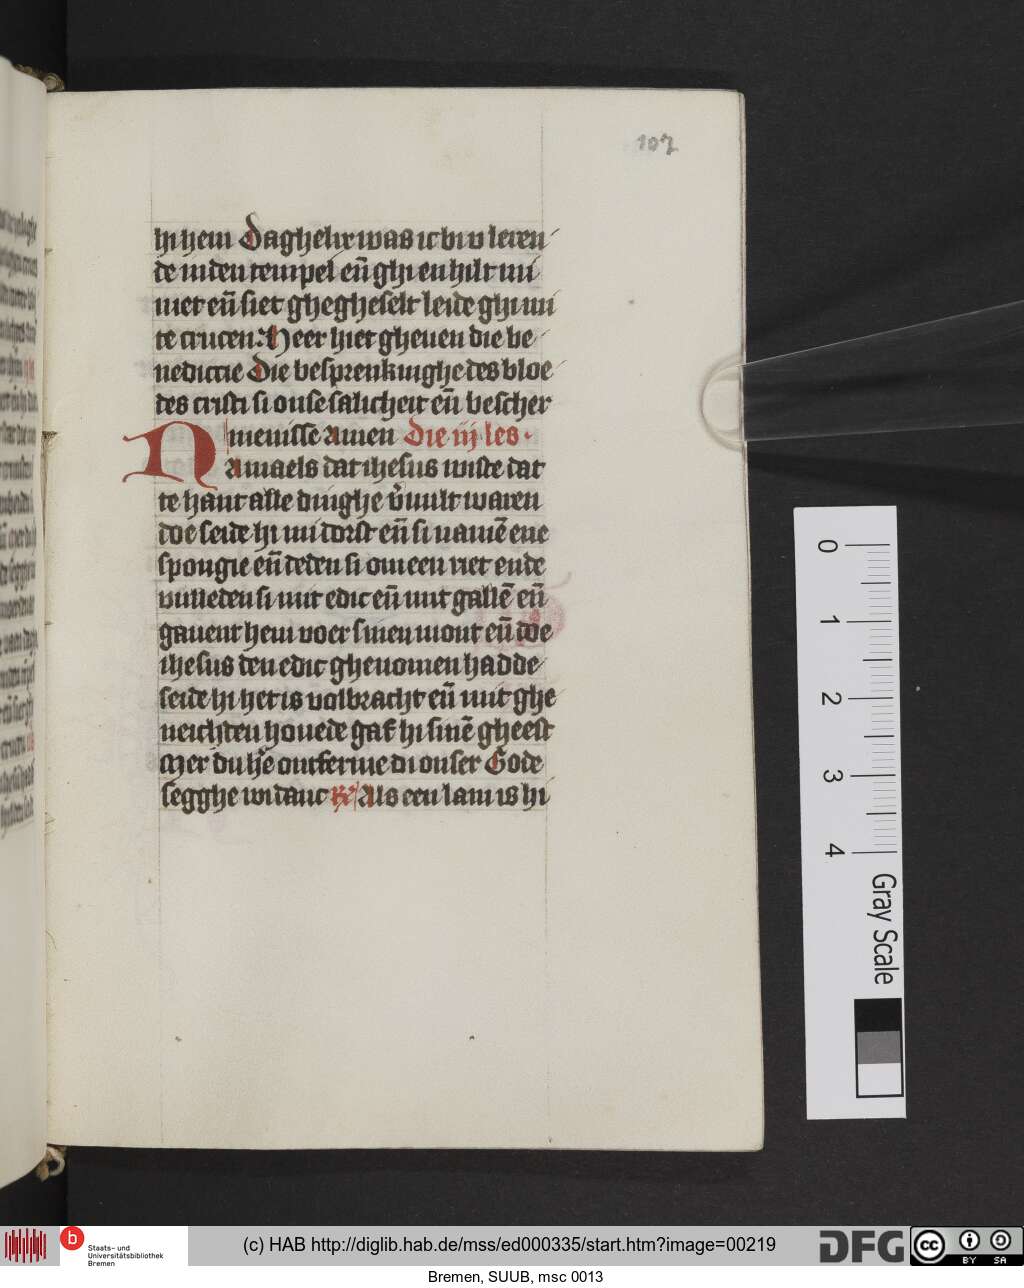 107
hi hem Daghelix was ic bi v leren
de inden tempel eñ ghi en hilt mi
niet eñ siet ghegheselt leide ghi mi
te crucen. Heer hiet gheuen die be
nedictie Die besprenkinghe des bloe
des cristi si onse salicheit eñ bescher
menisse amen Die iij les.
Namaels dat ihesus wiste dat
te hant alle dinghe v̄uult waren
doe seide hi mi dorst eñ si namē ene
spongie eñ deden si om een riet ende
vulleden si mit edic eñ mit gallē eñ
gauent hem voer sinen mont eñ doe
ihesus den edic ghenomen hadde
seide hi het is volbracht eñ mit ghe
neichten houede gaf hi sinē gheest
Mer du hē ontferme di onser Gode
segghe wi danc R Als een lam is hi
0
1
2
3
4
Gray Scale
b Staats- und
Universitätsbibliothek
Bremen
(c) HAB http://diglib.hab.de/mss/ed000335/start.htm?image=00219
DFG
cc BY SA
Bremen, SUUB, msc 0013